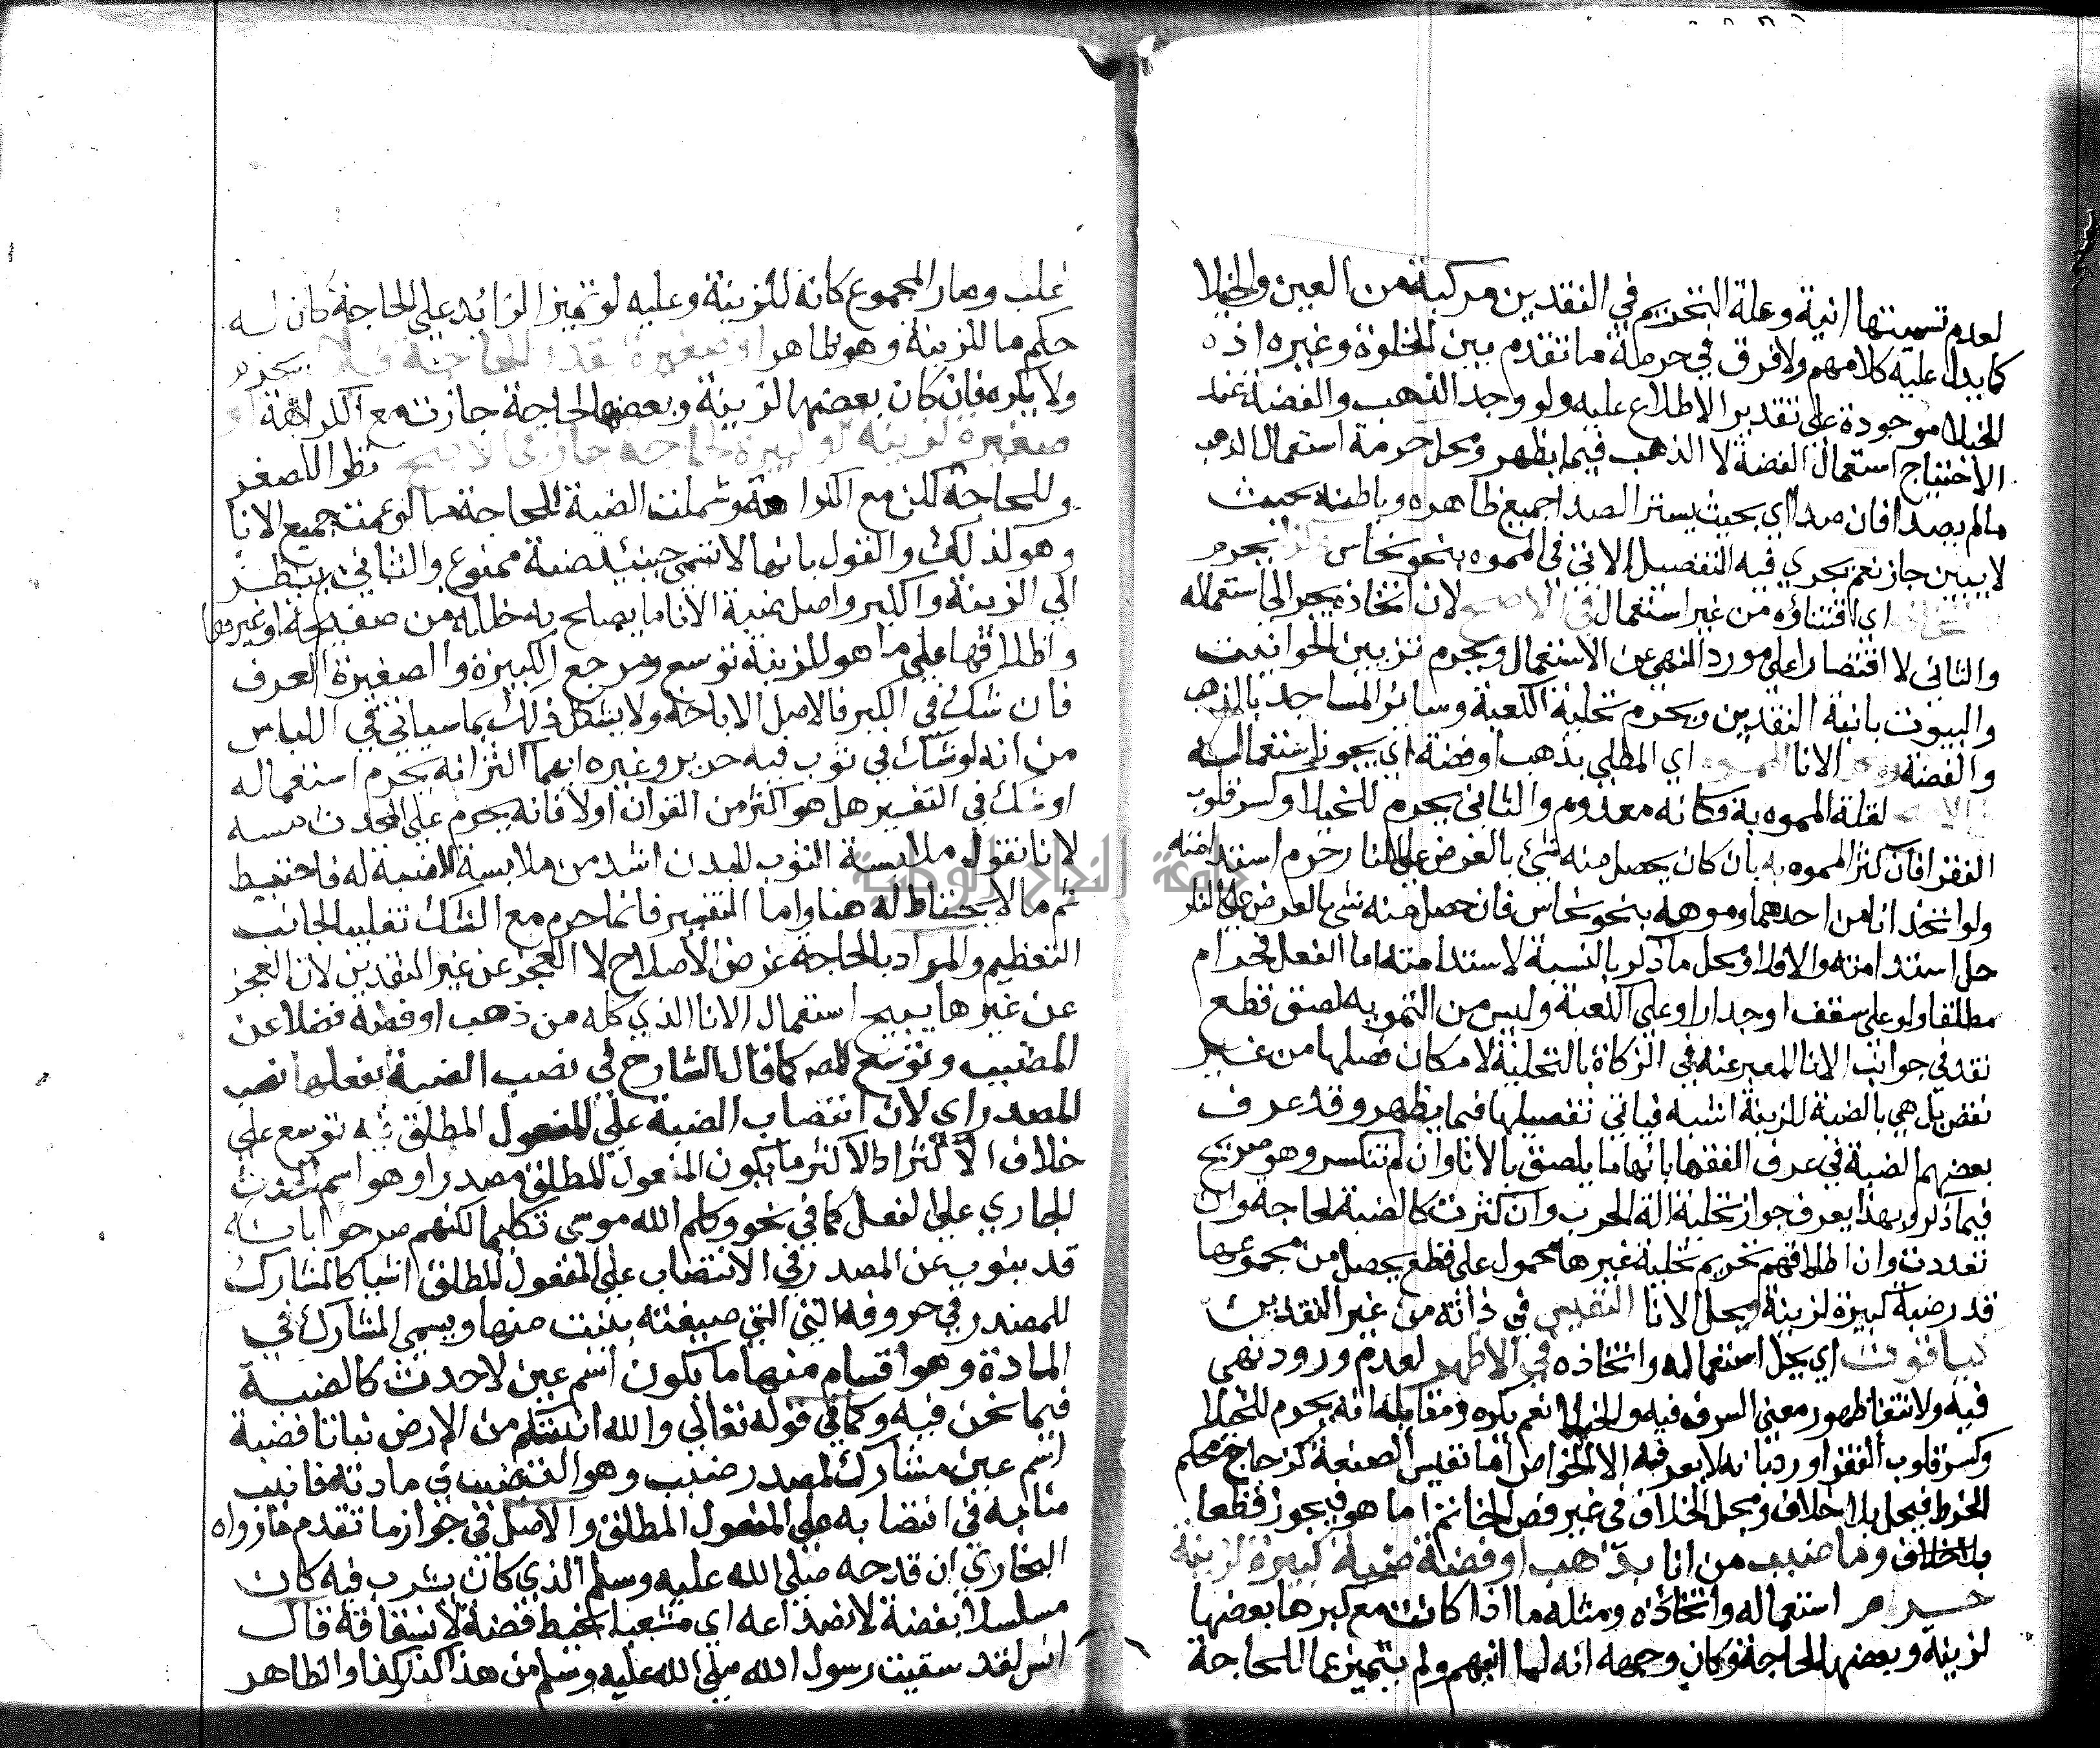 لعدم تسميتها انية وعلة التحريم في النقدين مركبة من العين والخيلا
كما يدل عليه كلامهم ولا فرق في حرمة ما تقدم بين الخلوة وغيره اذه
الخيلا موجودة على تقدير الاطلاع عليه ولو وجد الذهب والفضة عند
الاحتياج استعمال الفضة لا الذهب فيما يظهر ومحل حرمة استعمال الذهب
مالم يصدا فان صدا اي بحيث يستر الصدا جميع ظاهره وباطنه بحيث
لا يبين جاز نعم يجري فيه التفصيل الاتي في المموه بنحو نحاس وكذا يحرم
اتخاذه اي اقتناؤه من غير استعمال في الاصح لان اتخاذه يجر الى استعماله
والثاني لا اقتصارا على مورد النهي عن الاستعمال ويحرم تزيين الحوانيت
والبيوت بانية النقدين ويحرم تحلية الكعبة وسائر المساجد بالذهب
والفضة ويحل الانا المموه اي المطلي بذهب او فضة اي يجوز استعماله
في الاصح لقلة المموه به فكانه معدوم والثاني يحرم للخيلا وكسر قلوب
الفقرا فان كثر المموه به بان كان يحصل منه شئ بالعرض على النار حرم استدامته
ولو اتخذ انا من احدهما وموهه بنحو نحاس فان حصل منه شئ بالعرض على النار
حل استدامته والا فلا ومحل ما ذكر بالنسبة لاستدامته اما الفعل فحرام
مطلقا ولو على سقف او جدار او على الكعبة وليس من التمويه لصق قطع
نقد في جوانب الانا المعبر عنه في الزكاة بالتحلية لامكان فصلها من غير
نقص بل هي بالضبة للزينة اشبه فياتي تفصيلها فيما يظهر وقد عرف
بعضهم الضبة في عرف الفقها بانها ما يلصق بالانا وان لم تنكسر وهو صريح
فيما ذكر وبهذا يعرف جواز تحلية الة الحرب وان كثرت كالضبة لحاجة وان
تعددت وان اطلاقهم تحريم تحلية غيرها محمول على قطع يحصل من مجموعها
قدر ضبة كبيرة لزينة ويحل الانا النفيس في ذاته من غير النقدين
كياقوت اي يحل استعماله واتخاذه في الاظهر لعدم ورود نهي
فيه ولانتفا ظهور معنى السرف فيه والخيلا نعم يكره ومقابله انه يحرم للخيلا
وكسر قلوب الفقرا ورد بانه لا يعرفه الا الخواص اما نفيس الصنعة كزجاج محكم
الخرط فيحل بلا خلاف ومحل الخلاف في غير فص الخاتم اما هو فيجوز قطعا
وما ضبب من انا بذهب او فضة ضبة كبيرة لزينة
حرم استعماله واتخاذه ومثله ما اذا كانت مع كبرها بعضها
لزينة وبعضها لحاجة وكان وجهه انه لما انبهم ولم يتميز عما للحاجة
غلب وصار المجموع كانه للزينة وعليه لو تميز الزائد على الحاجة كان له
حكم ما للزينة وهو ظاهر او صغيرة بقدر الحاجة فلا يحرم
ولا يكره فان كان بعضها لزينة وبعضها لحاجة جازت مع الكراهة او
صغيرة لزينة او كبيرة لحاجة جاز في الاصح نظرا للصغر
وللحاجة لكن مع الكراهة وشملت الضبة للحاجة ما لو عمت جميع الانا
وهو كذلك والقول بانها لا تسمى حينئذ ضبة ممنوع والثاني ينظر
الى الزينة والكبر واصل ضبة الانا ما يصلح به خلله من صفيحة او غيرها
واطلاقها على ما هو للزينة توسع ومرجع الكبيرة والصغيرة العرف
فان شك في الكبر فالاصل الاباحة ولا يشكل ذلك بما سياتي في اللباس
من انه لو شك في ثوب فيه حرير وغيره ايهما اكثر انه يحرم استعماله
او شك في التفسير هل هو اكثر من القران اولا فانه يحرم على المحدث مسه
لانا نقول ملابسة الثوب للبدن اشد من ملابسة الضبة له فاحتيط
ثم مالا يحتاط له هنا واما التفسير فانما حرم مع الشك تغليبا لجانب
التعظيم والمراد بالحاجة غرض الاصلاح لا العجز عن غير النقدين لان العجز
عن غيرها يبيح استعمال الانا الذي كله من ذهب او فضة فضلا عن
المضبب وتوسع المص كما قال الشارح في نصب الضبة بفعلها نصب
المصدر اي لان انتصاب الضبة على المفعول المطلق فيه توسع على
خلاف الاكثر اذ الاكثر ما يكون المفعول المطلق مصدرا وهو اسم الحدث
الجاري على الفعل كما في نحو وكلم الله موسى تكليما لكنهم صرحوا بانه
قد ينوب عن المصدر في الانتصاب على المفعول المطلق اشيا كالمشارك
للمصدر في حروفه التي التي صيغته بنيت منها ويسمى المشارك في
المادة وهو اقسام منها ما يكون اسم عين لا حدث كالضبة
فيما نحن فيه وكما في قوله تعالى والله انبتكم من الارض نباتا فضبة
اسم عين مشارك لمصدر ضبب وهو التضبيب في مادته فانيب
منابه في انتصابه على المفعول المطلق والاصل في جواز ما تقدم ما رواه
البخاري ان قدحه صلى الله عليه وسلم الذي كان يشرب فيه كان
مسلسلا بفضة لانصداعه اي مشعبا بخيط فضة لانشقاقه قال
انس لقد سقيت رسول الله صلى الله عليه وسلم من هذا كذا وكذا والظاهر
جامعة النجاح الوطنية